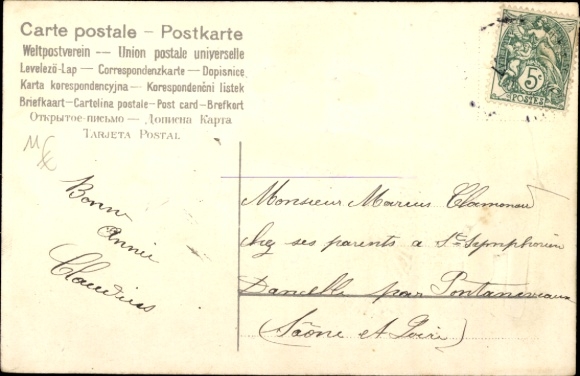 Carte postale – Postkarte
Weltpostverein — Union postale universelle
Levelező-Lap — Correspondenzkarte — Dopisnice
Karta korespondencyjna — Korespondenční lístek
Briefkaart — Cartolina postale — Post card — Brefkort
Открытое-письмо — Дописна Карта
TARJETA POSTAL
5c
POSTES
Bonne
année
Claudius
Monsieur Marcus
chez ses parents a St Symphorien
par
(Saône et Loire)